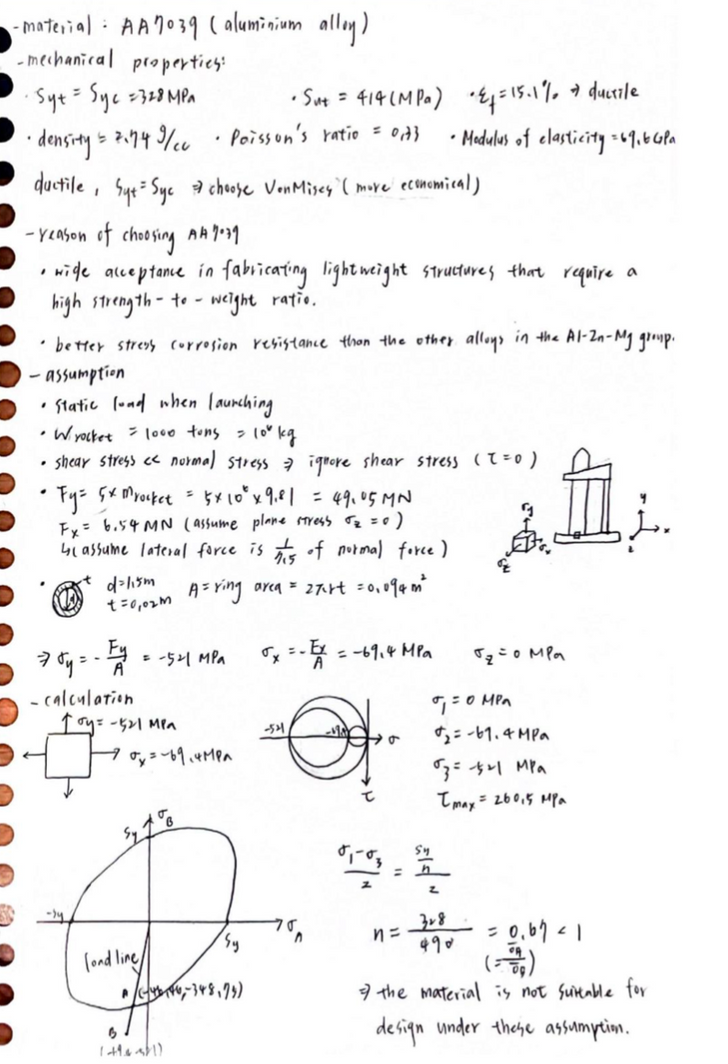 - material : AA7039 (aluminium alloy)
- mechanical properties:
· Syt = Syc = 328 MPa · Sut = 414 (MPa) · εf = 15.1% → ductile
· density = 2.74 g/cc · Poisson's ratio = 0.33 · Modulus of elasticity = 69.6 GPa
ductile, Syt = Syc ⇒ choose Von Mises (more economical)
- reason of choosing AA7039
· wide acceptance in fabricating lightweight structures that require a
high strength - to - weight ratio.
· better stress corrosion resistance than the other alloys in the Al-Zn-Mg group.
- assumption
· static load when launching
· Wrocket = 1000 tons = 10⁶ kg
· shear stress << normal stress ⇒ ignore shear stress (τ=0)
· Fy = 5 × mrocket = 5×10⁶ × 9.81 = 49.05 MN
Fx = 6.54 MN (assume plane stress σz = 0)
↳ (assume lateral force is 1/7.5 of normal force)
σy
σx
σz
y
x
z
· t d=1.5m A = ring area = 2πrt = 0.094 m²
t = 0.02m
⇒ σy = - Fy/A = -521 MPa σx = - Fx/A = -69.4 MPa σz = 0 MPa
- calculation
σy = -521 MPa
σx = -69.4 MPa
-521
σ
τ
σ1 = 0 MPa
σ2 = -69.4 MPa
σ3 = -521 MPa
τmax = 260.5 MPa
σB
Sy
-Sy
Sy
σA
load line
A (-46.46, -348.79)
B
(σ1-σ3)/2 = (Sy/n)/2
n = 328/490 = 0.67 < 1
⇒ the material is not suitable for
design under these assumption.